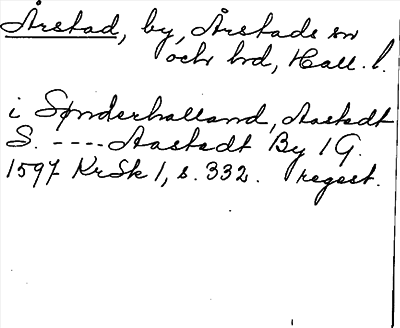 Årstad, by, Årstads sn
och hd, Hall. l.
i Sønderhalland, Aastadt
S. ---- Aastadt By 1 G.
1597 KrSk 1, s. 332. regest.